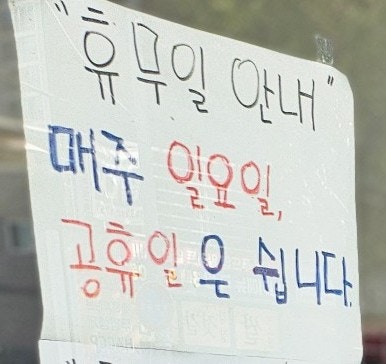 "휴무일 안내"
매주 일요일,
공휴일은 쉽니다.